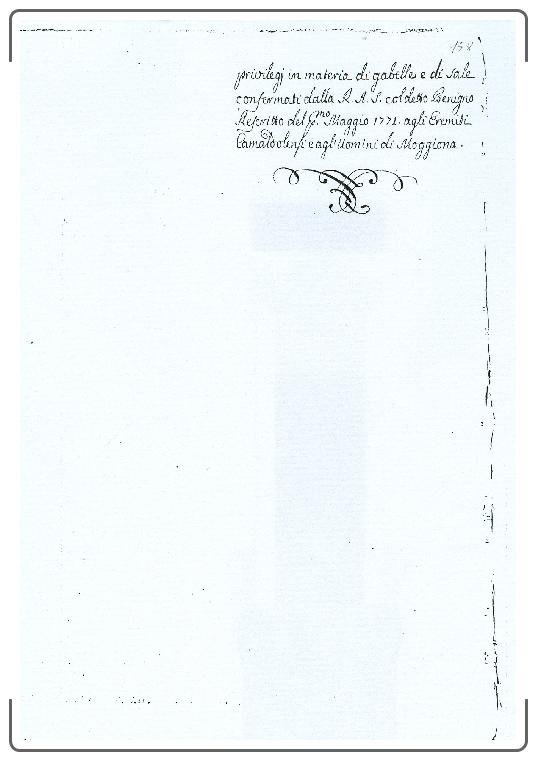 158
privilegj in materia di gabelle e di Sale
confermati dalla R. A. S. col detto Benigno
Rescritto del P.mo Maggio 1771. agli Eremiti
Camaldolensi e agli Uomini di Moggiona.